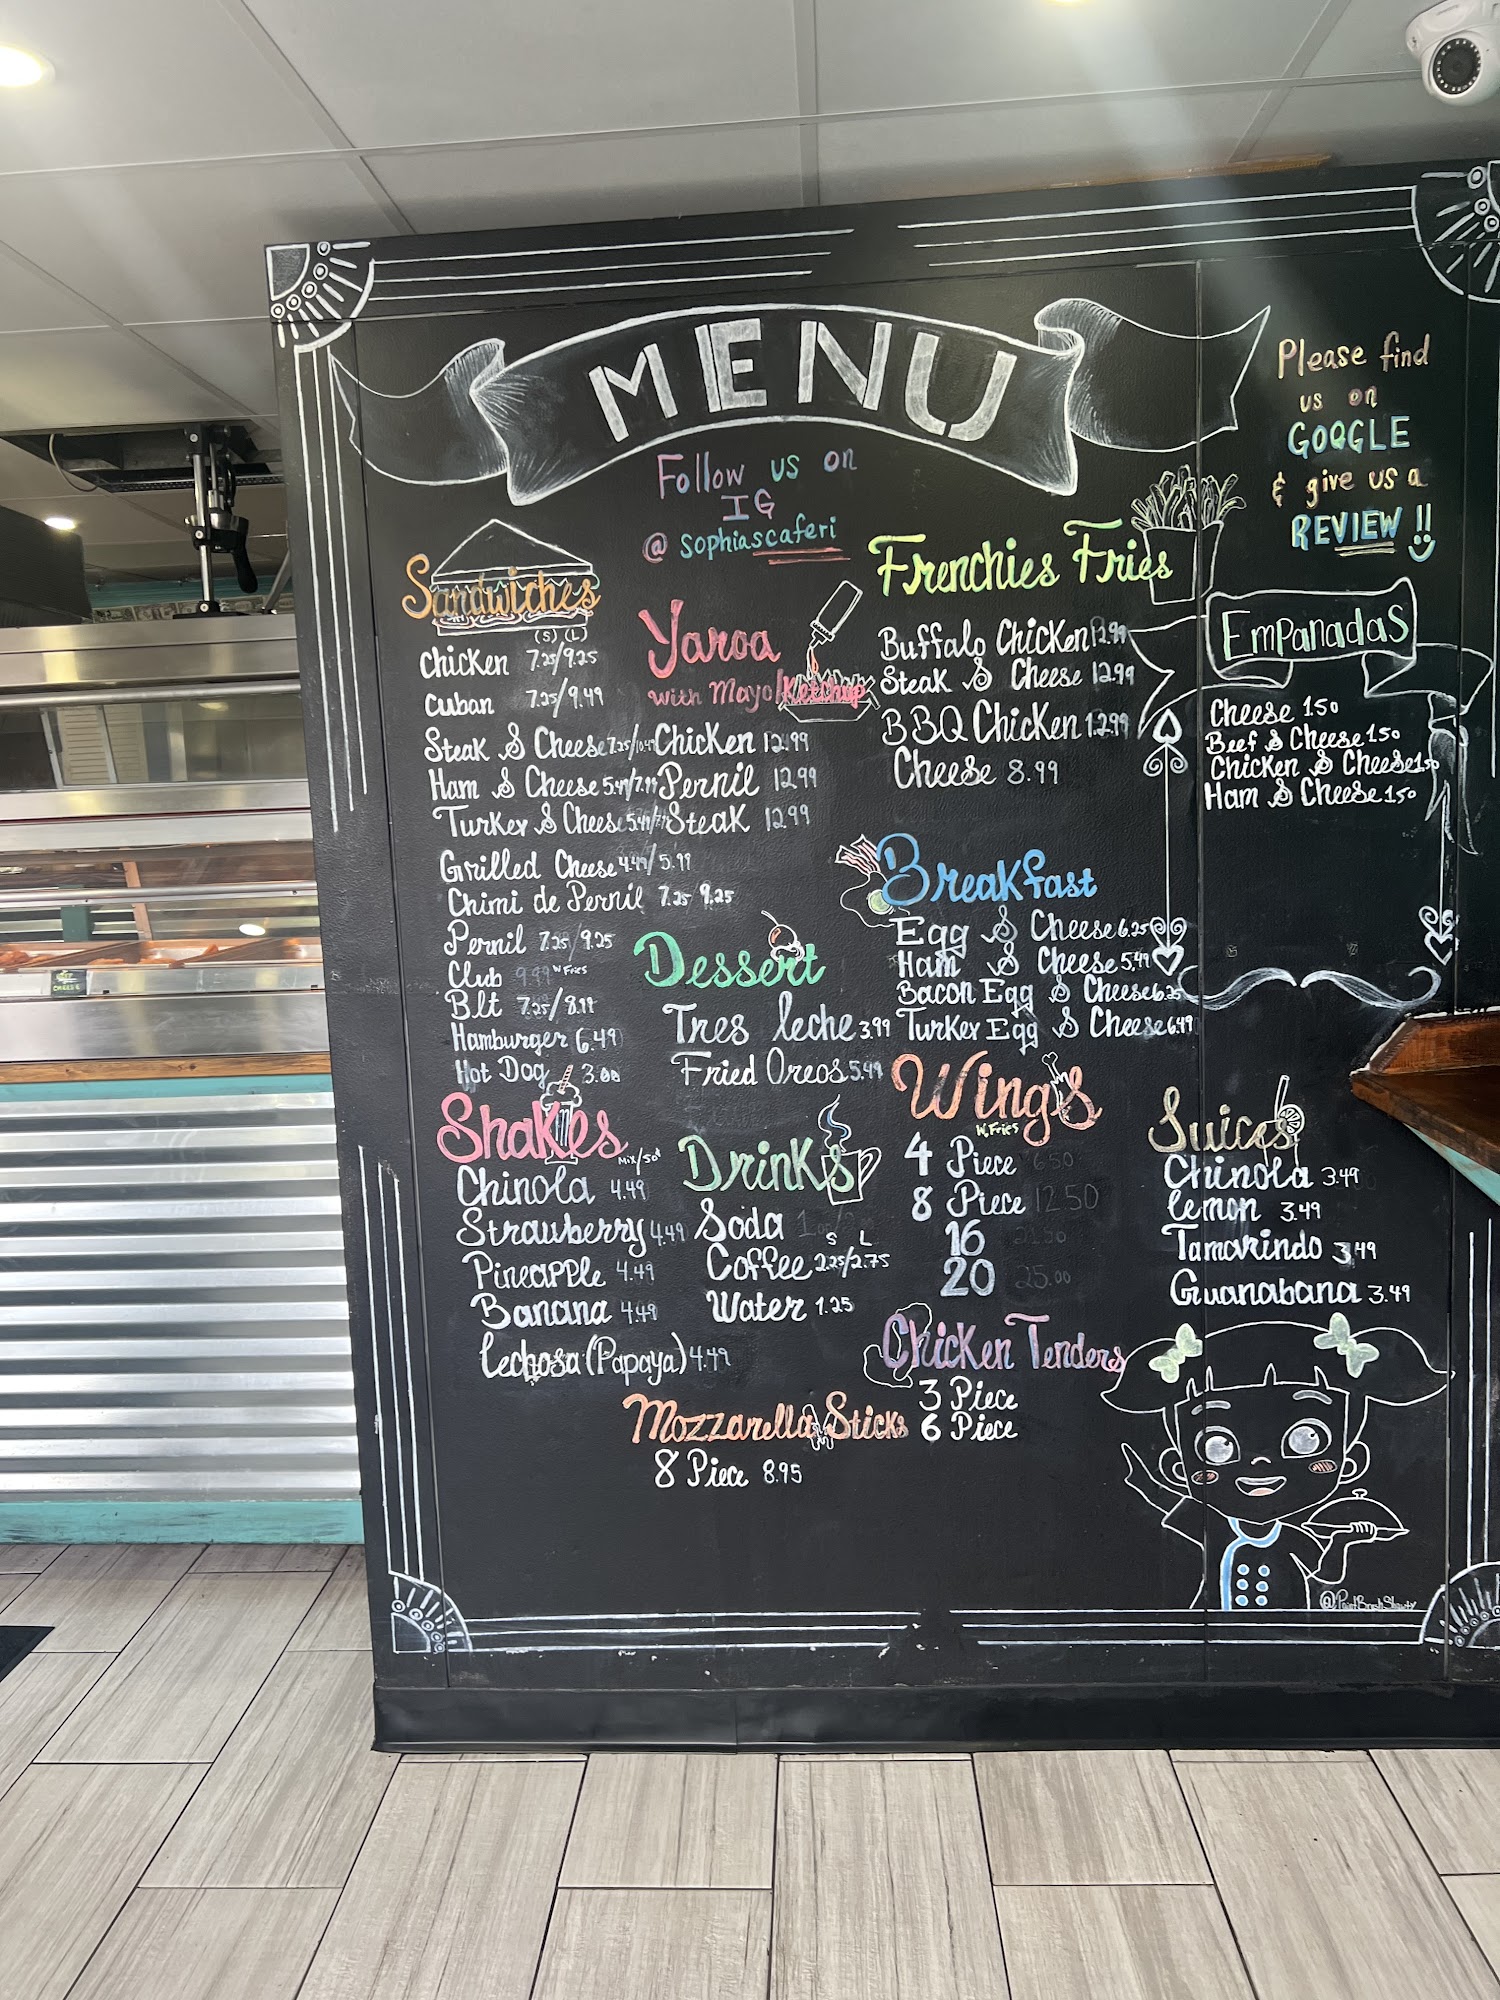 MENU
Follow us on
IG
@ sophiascaferi
Please find
us on
GOOGLE
& give us a
REVIEW !!
Sandwiches
(S) (L)
Chicken 7.25/9.25
Cuban 7.25/9.49
Steak & Cheese 7.25/10.49
Ham & Cheese 5.49/7.99
Turkey & Cheese 5.49/
Grilled Cheese 4.49/5.99
Chimi de Pernil 7.25 9.25
Pernil 7.25/9.25
Club 9.99 W Fries
Blt 7.25/8.99
Hamburger 6.49
Hot Dog 3.00
Yaroa
with Mayo/Ketchup
Chicken 12.99
Pernil 12.99
Steak 12.99
Frenchies Fries
Buffalo Chicken 12.99
Steak & Cheese 12.99
BBQ Chicken 12.99
Cheese 8.99
Empanadas
Cheese 1.50
Beef & Cheese 1.50
Chicken & Cheese 1.50
Ham & Cheese 1.50
Dessert
Tres leche 3.99
Fried Oreos 5.49
Breakfast
Egg & Cheese 6.25
Ham & Cheese 5.49
Bacon Egg & Cheese 6.25
Turkey Egg & Cheese 6.49
Shakes
Mix/50¢
Chinola 4.49
Strawberry 4.49
Pineapple 4.49
Banana 4.49
Lechosa (Papaya) 4.49
Drinks
Soda
S L
Coffee 2.25/2.75
Water 1.25
Wings
W. Fries
4 Piece 6.50
8 Piece 12.50
16
20 25.00
Juices
Chinola 3.49
lemon 3.49
Tamarindo 3.49
Guanabana 3.49
Chicken Tenders
3 Piece
6 Piece
Mozzarella Sticks
8 Piece 8.95
@PaintBrushShawty